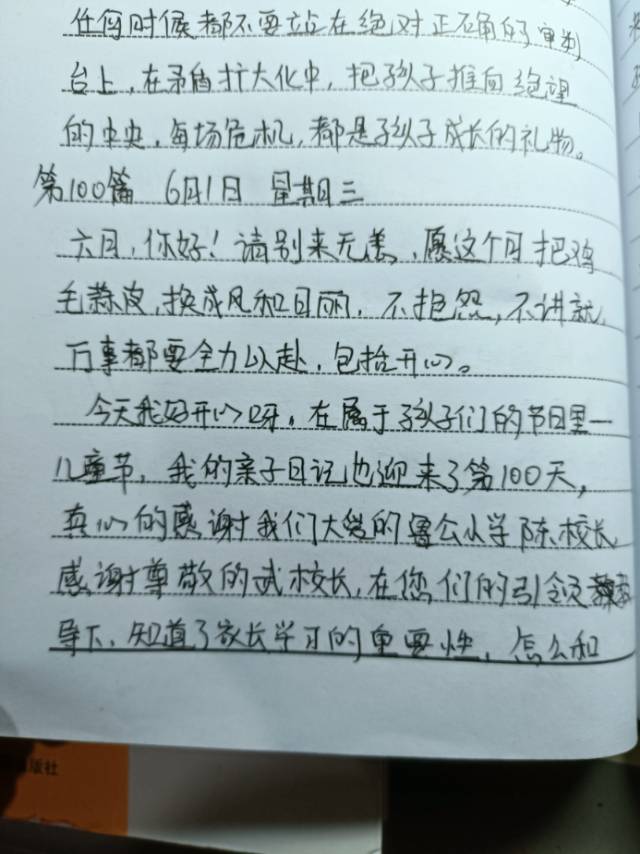 任何时候都不要站在绝对正确的审判
台上,在矛盾扩大化中,把孩子推向绝望
的中央,每场危机,都是孩子成长的礼物。
第100篇 6月1日 星期三
六月,你好!请别来无恙,愿这个月把鸡
毛蒜皮,换成风和日丽,不抱怨,不讲就,
万事都要全力以赴,包括开心。
今天我好开心呀,在属于孩子们的节日里一
儿童节,我的亲子日记也迎来了第100天,
真心的感谢我们大爱的鲁公小学陈校长,
感谢尊敬的武校长,在您们的引领
导下,知道了家长学习的重要性,怎么和
版社